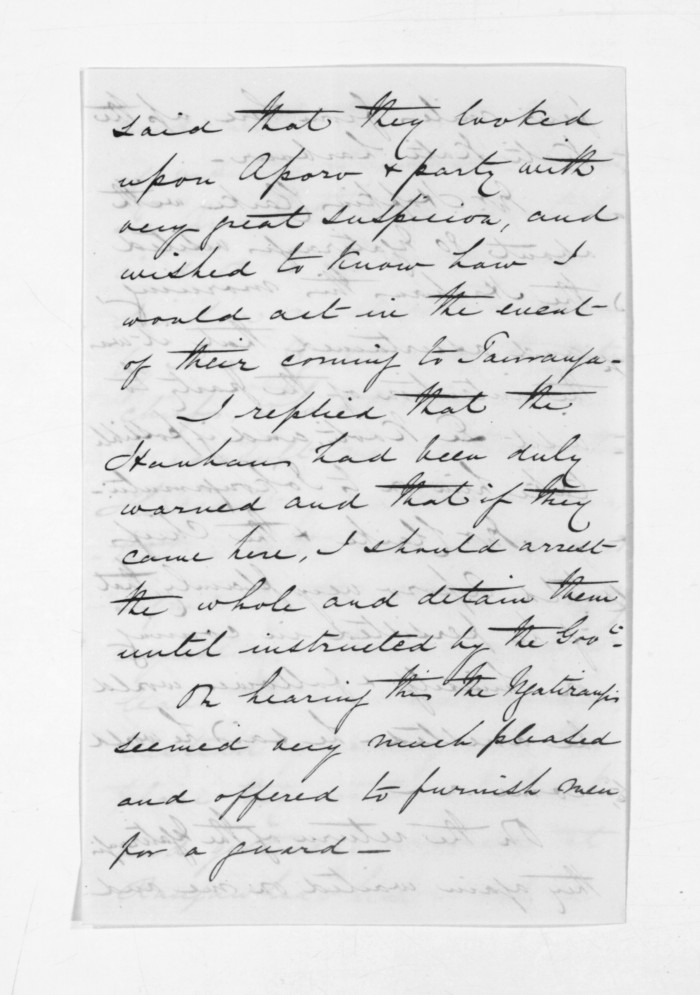 said that they looked
upon Aporo + party with
very great suspicion, and
wished to know how I
would act in the event
of their coming to Tauranga -
I replied that the
Hauhaus had been duly
warned and that if they
came here, I should arrest
the whole and detain them
until instructed by the Govt. -
On hearing this the Ngatirangis
seemed very much pleased
and offered to furnish men
for a guard -